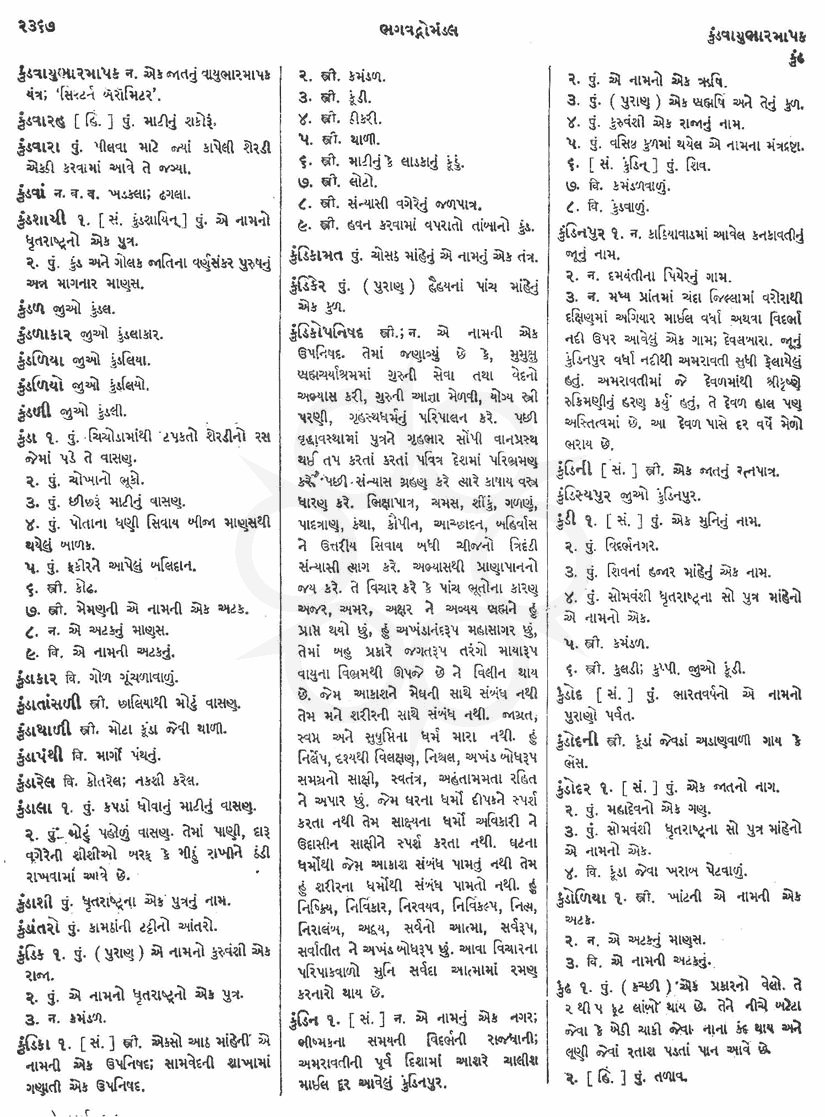 ૨૩૬૭
ભગવદ્ગોમંડલ
કુંડવાયુભારમાપક
કુંઢ
કુંડવાયુભારમાપક ન. એક જાતનું વાયુભારમાપક
યંત્ર; ‘સિસ્ટર્ન બૅરોમિટર’.
કુંડવારહુ [ હિં. ] પું. માટીનું શકોરૂં.
કુંડવારા પું. પીલવા માટે જ્યાં કાપેલી શેરડી
એકઠી કરવામાં આવે તે જગ્યા.
કુંડવાં ન. બ. વ. ખડકલા; ઢગલા.
કુંડશાયી ૧. [ સં. કુંડશાયિન્ ] પું. એ નામનો
ધૃતરાષ્ટ્રનો એક પુત્ર.
૨. પું. કુંડ અને ગોલક જાતિના વર્ણસંકર પુરુષનું
અન્ન માગનાર માણસ.
કુંડળ જુઓ કુંડલ.
કુંડળાકાર જુઓ કુંડલાકાર.
કુંડળિયા જુઓ કુંડલિયા.
કુંડળિયો જુઓ કુંડલિયો.
કુંડળી જુઓ કુંડલી.
કુંડા ૧. પું. ચિચોડામાંથી ટપકતો શેરડીનો રસ
જેમાં પડે તે વાસણ.
૨. પું. ચોખાનો ભૂકો.
૩. પું. છીછરૂં માટીનું વાસણ.
૪. પું. પોતાના ધણી સિવાય બીજા માણસથી
થયેલું બાળક.
૫. પું. ફકીરને આપેલું બલિદાન.
૬. સ્ત્રી. કોઢ.
૭. સ્ત્રી. મેમણની એ નામની એક અટક.
૮. ન. એ અટકનું માણસ.
૯. વિ. એ નામની અટકનું.
કુંડાકાર વિ. ગોળ ગૂંચળાવાળું.
કુંડાતાંસળી સ્ત્રી. છાલિયાથી મોટું વાસણ.
કુંડાથાળી સ્ત્રી. મોટા કૂંડા જેવી થાળી.
કુંડાપંથી વિ. માર્ગી પંથનું.
કુંડારેલ વિ. કોતરેલ; નકશી કરેલ.
કુંડાલા ૧. પું. કપડાં ધોવાનું માટીનું વાસણ.
૨. પું. મોટું પહોળું વાસણ. તેમાં પાણી, દારૂ
વગેરેની શીશીઓ બરફ કે મીઠું રાખીને ઠંડી
રાખવામાં આવે છે.
કુંડાશી પું. ધૃતરાષ્ટ્રના એક પુત્રનું નામ.
કુંડાંતરો પું. કામઠાંની ટટ્ટીનો આંતરો.
કુંડિક ૧. પું. ( પુરાણ ) એ નામનો કુરુવંશી એક
રાજા.
૨. પું. એ નામનો ધૃતરાષ્ટ્રનો એક પુત્ર.
૩. ન. કમંડળ.
કુંડિકા ૧. [ સં. ] સ્ત્રી. એકસો આઠ માંહેની એ
નામની એક ઉપનિષદ; સામવેદની શાખામાં
ગણાતી એક ઉપનિષદ.
૨. સ્ત્રી. કમંડળ.
૩. સ્ત્રી. કૂંડી.
૪. સ્ત્રી. ઠીકરી.
૫. સ્ત્રી. થાળી.
૬. સ્ત્રી. માટીનું કે લાકડાનું કૂંડું.
૭. સ્ત્રી. લોટો.
૮. સ્ત્રી. સંન્યાસી વગેરેનું જળપાત્ર.
૯. સ્ત્રી. હવન કરવામાં વપરાતો તાંબાનો કુંડ.
કુંડિકામત પું. ચોસઠ માંહેનું એ નામનું એક તંત્ર.
કુંડિકેર પું. ( પુરાણ ) હૈહયનાં પાંચ માંહેનું
એક કુળ.
કુંડિકોપનિષદ સ્ત્રી.; ન. એ નામની એક
ઉપનિષદ. તેમાં જણાવ્યું છે કે, મુમુક્ષુ
બ્રહ્મચર્યાશ્રમમાં ગુરુની સેવા તથા વેદનો
અભ્યાસ કરી, ગુરુની આજ્ઞા મેળવી, યોગ્ય સ્ત્રી
પરણી, ગૃહસ્થધર્મનું પરિપાલન કરે. પછી
વૃદ્ધાવસ્થામાં પુત્રને ગૃહભાર સોંપી વાનપ્રસ્થ
થઈ તપ કરતાં કરતાં પવિત્ર દેશમાં પરિભ્રમણ
કરે. પછી સંન્યાસ ગ્રહણ કરે ત્યારે કાષાય વસ્ત્ર
ધારણ કરે. ભિક્ષાપાત્ર, ચમસ, શીંકું, ગળણું,
પાદત્રાણ, કંથા, કૌપીન, આચ્છાદન, બહિર્વાસ
ને ઉત્તરીય સિવાય બધી ચીજનો ત્રિદંડી
સંન્યાસી ત્યાગ કરે. અભ્યાસથી પ્રાણાપાનનો
જય કરે. તે વિચાર કરે કે પાંચ ભૂતોના કારણ
અજર, અમર, અક્ષર ને અવ્યય બ્રહ્મને હું
પ્રાપ્ત થયો છું, હું અખંડાનંદરૂપ મહાસાગર છું,
તેમાં બહુ પ્રકારે જગતરૂપ તરંગો માયારૂપ
વાયુના વિભ્રમથી ઊપજે છે ને વિલીન થાય
છે. જેમ આકાશને મેઘની સાથે સંબંધ નથી
તેમ મને શરીરની સાથે સંબંધ નથી. જાગ્રત,
સ્વપ્ન અને સુષુપ્તિના ધર્મ મારા નથી. હું
નિર્લેપ, દૃશ્યથી વિલક્ષણ, નિશ્ચલ, અખંડ બોધરૂપ
સમગ્રનો સાક્ષી, સ્વતંત્ર, અહંતામમતા રહિત
ને અપાર છું. જેમ ઘરના ધર્મો દીપકને સ્પર્શ
કરતા નથી તેમ સાક્ષ્યના ધર્મો અવિકારી ને
ઉદાસીન સાક્ષીને સ્પર્શ કરતા નથી. ઘટના
ધર્મોથી જેમ આકાશ સંબંધ પામતું નથી તેમ
હું શરીરના ધર્મોથી સંબંધ પામતો નથી. હું
નિષ્ક્રિય, નિર્વિકાર, નિરવયવ, નિર્વિકલ્પ, નિત્ય,
નિરાલંબ, અદ્વય, સર્વનો આત્મા, સર્વરૂપ,
સર્વાતીત ને અખંડ બોધરૂપ છું. આવા વિચારના
પરિપાકવાળો મુનિ સર્વદા આત્મામાં રમણ
કરનારો થાય છે.
કુંડિન ૧. [ સં. ] ન. એ નામનું એક નગર;
ભીષ્મકના સમયની વિદર્ભની રાજધાની;
અમરાવતીની પૂર્વ દિશામાં આશરે ચાલીશ
માઈલ દૂર આવેલું કુંડિનપુર.
૨. પું. એ નામનો એક ઋષિ.
૩. પું. ( પુરાણ ) એક બ્રહ્મર્ષિ અને તેનું કુળ.
૪. પું. કુરુવંશી એક રાજાનું નામ.
૫. પું. વસિષ્ઠ કુળમાં થયેલ એ નામના મંત્રદ્રષ્ટા.
૬. [ સં. કુંડિન્ ] પું. શિવ.
૭. વિ. કમંડળવાળું.
૮. વિ. કુંડવાળું.
કુંડિનપુર ૧. ન. કાઠિયાવાડમાં આવેલ કનકાવતીનું
જૂનું નામ.
૨. ન. દમયંતીના પિયેરનું ગામ.
૩. ન. મધ્ય પ્રાંતમાં ચંદા જિલ્લામાં વરોરાથી
દક્ષિણમાં અગિયાર માઈલ વર્ધા અથવા વિદર્ભા
નદી ઉપર આવેલું એક ગામ; દેવલબારા. જૂનું
કુંડિનપુર વર્ધા નદીથી અમરાવતી સુધી ફેલાયેલું
હતું. અમરાવતીમાં જે દેવળમાંથી શ્રીકૃષ્ણે
રુક્મિણીનું હરણ કર્યું હતું, તે દેવળ હાલ પણ
અસ્તિત્વમાં છે. આ દેવળ પાસે દર વર્ષે મેળો
ભરાય છે.
કુંડિની [ સં. ] સ્ત્રી. એક જાતનું રત્નપાત્ર.
કુંડિસ્યપુર જુઓ કુંડિનપુર.
કુંડી ૧. [ સં. ] પું. એક મુનિનું નામ.
૨. પું. વિદર્ભનગર.
૩. પું. શિવનાં હજાર માંહેનું એક નામ.
૪. પું. સોમવંશી ધૃતરાષ્ટ્રના સો પુત્ર માંહેનો
એ નામનો એક.
૫. સ્ત્રી. કમંડળ.
૬. સ્ત્રી. કુલડી; કુપ્પી. જુઓ કૂંડી.
કુંડોદ [ સં. ] પું. ભારતવર્ષનો એ નામનો
પુરાણો પર્વત.
કુંડોદની સ્ત્રી. કૂંડાં જેવડાં અડાણવાળી ગાય કે
ભેંસ.
કુંડોદર ૧. [ સં. ] પું. એક જાતનો નાગ.
૨. પું. મહાદેવનો એક ગણ.
૩. પું. સોમવંશી ધૃતરાષ્ટ્રના સો પુત્ર માંહેનો
એ નામનો એક.
૪. વિ. કૂંડા જેવા ખરાબ પેટવાળું.
કુંડોળિયા ૧. સ્ત્રી. ખાંટની એ નામની એક
અટક.
૨. ન. એ અટકનું માણસ.
૩. વિ. એ નામની અટકનું.
કુંઢ ૧. પું. ( કચ્છી ) એક પ્રકારનો વેલો. તે
૨ થી ૫ ફૂટ લાંબો થાય છે. તેને નીચે બટેટા
જેવા કે બેઠી ચાકી જેવા નાના કંદ થાય અને
લૂણી જેવાં રતાશ પડતાં પાન આવે છે.
૨. [ હિં. ] પું. તળાવ.